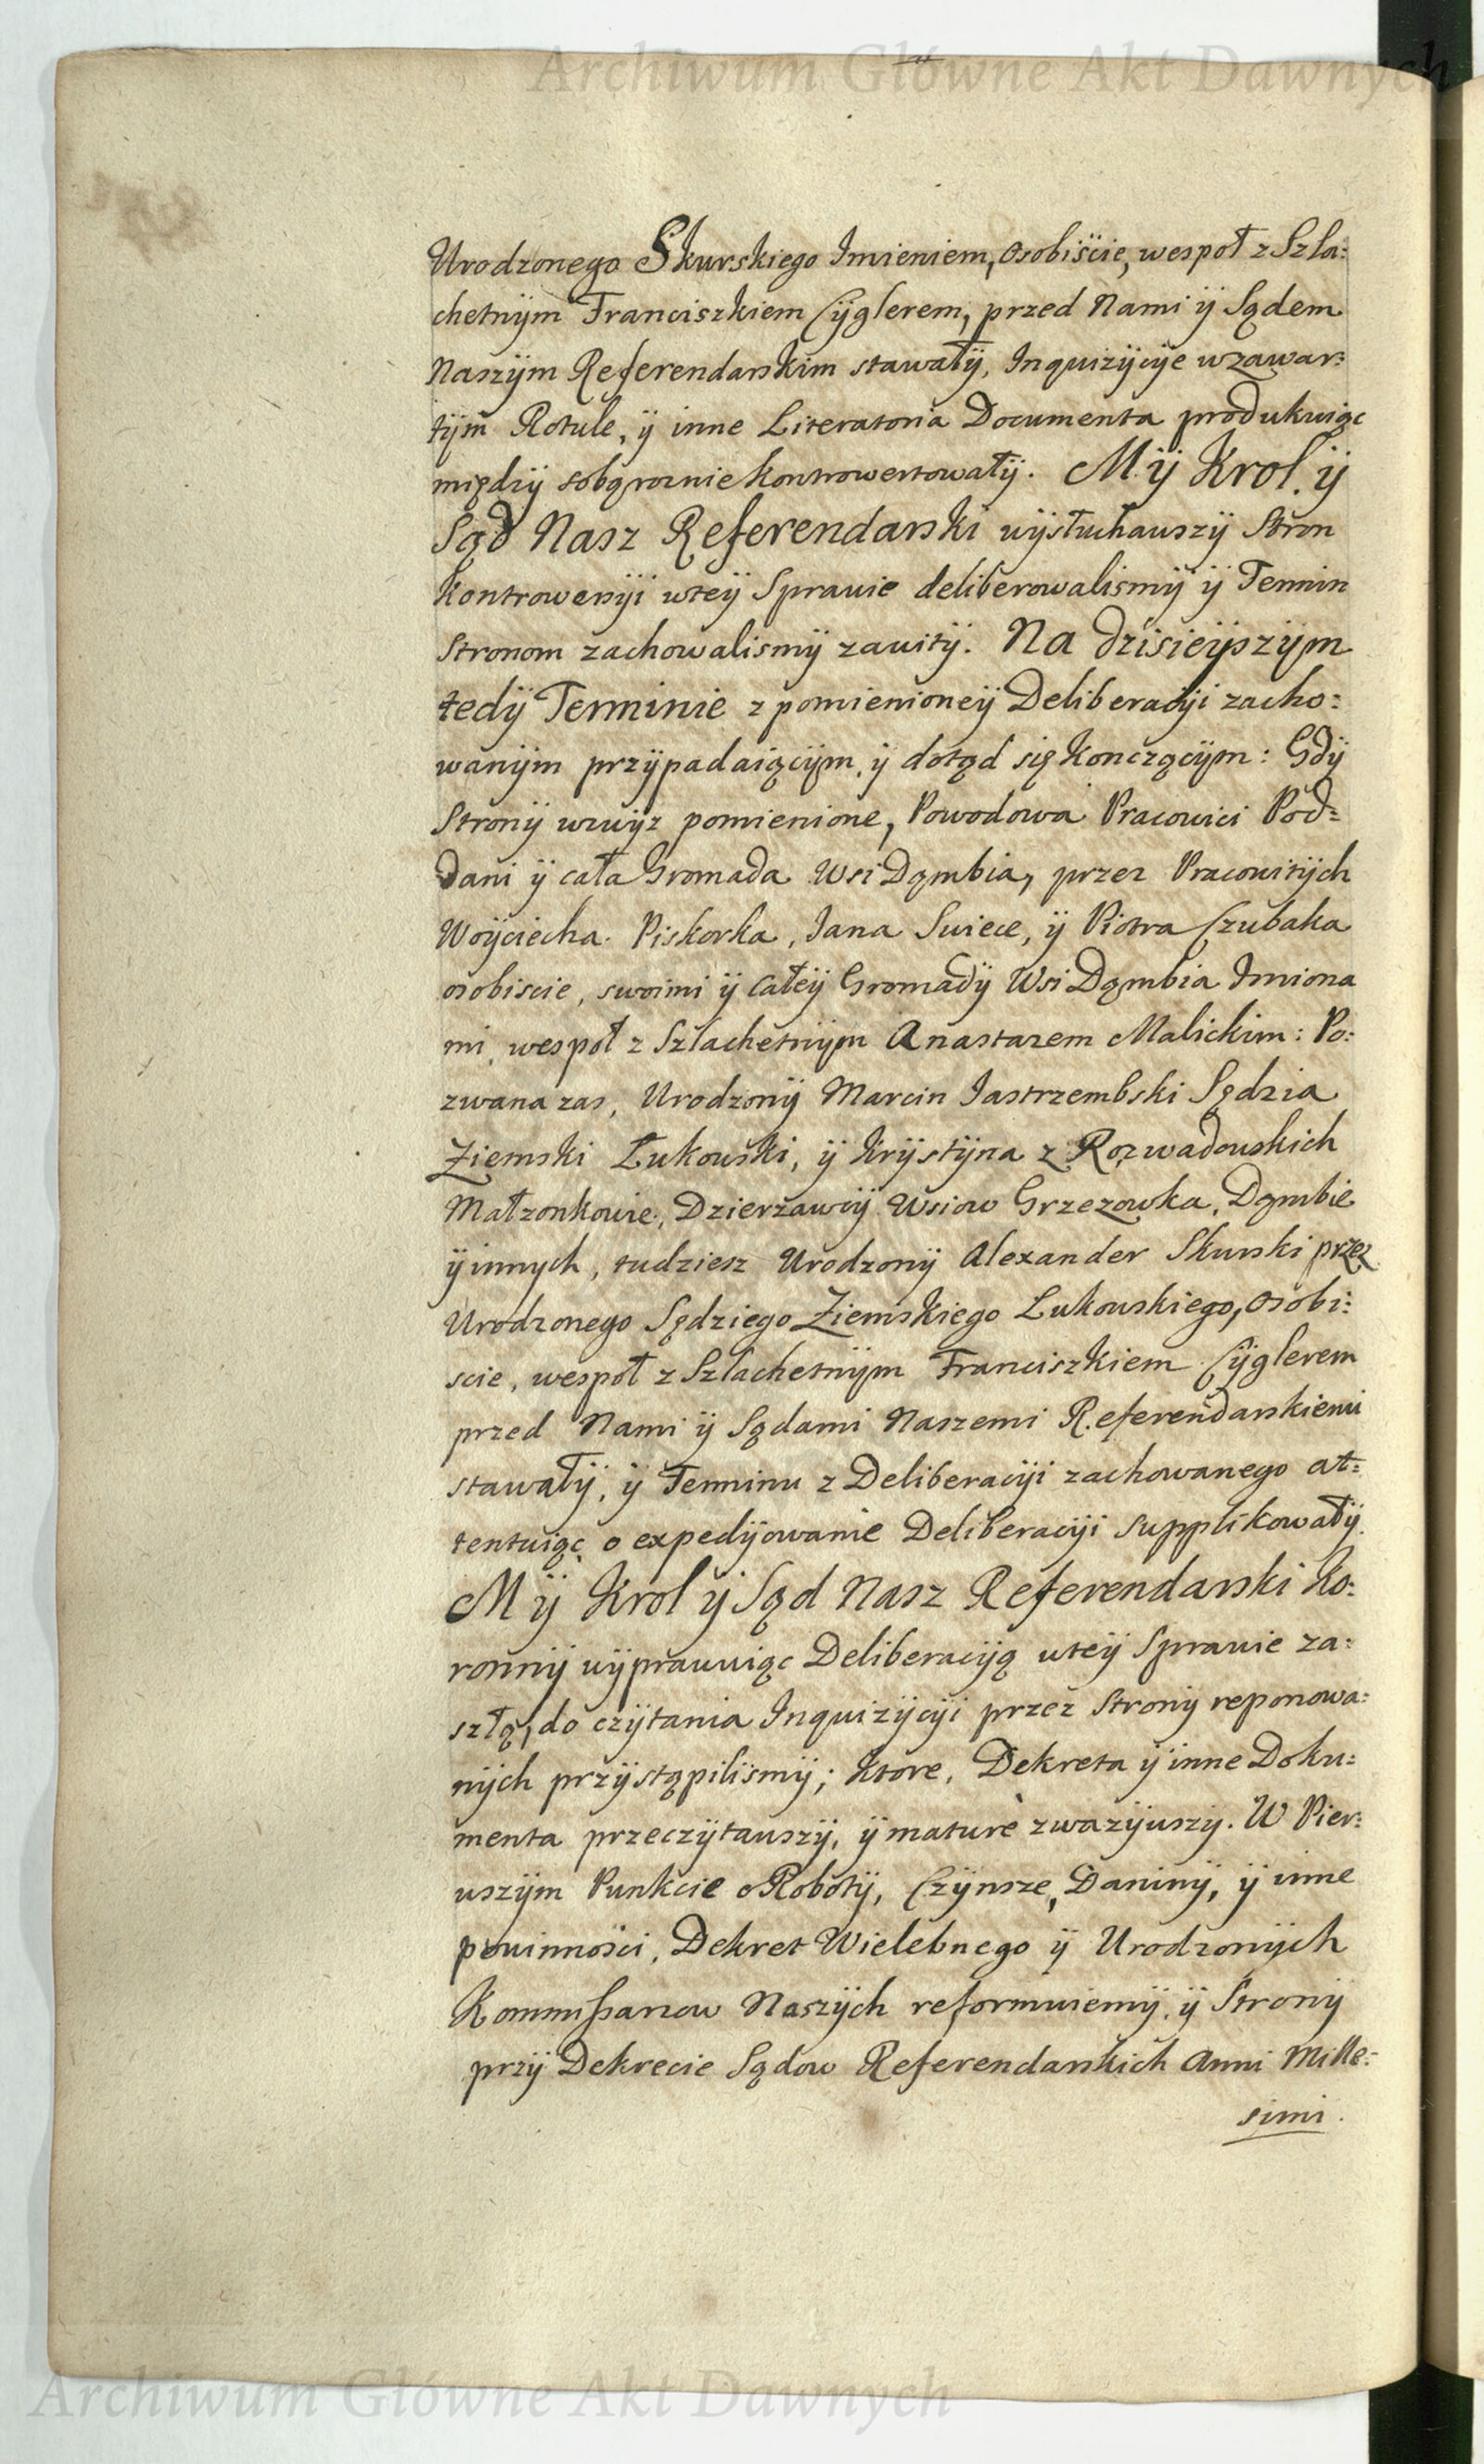 Archiwum Główne Akt Dawnych
Urodzonego Skurskiego Imieniem, osobiście, wespoł z Szla:
chetnÿm Franciszkiem Cÿglerem, przed Nami ÿ Sądem
Naszÿm Referendarskim stawałÿ, Inquizÿcÿe w zawar:
tÿm Rotule, ÿ inne Literatoria Documenta produkuiąc
międzÿ sobą rożnie kontrowertowałÿ. MŸ Krol ÿ
Sąd Nasz Referendarski wÿsłuchawszÿ Stron
kontrowersÿi w teÿ Sprawie deliberowalismÿ ÿ Termin
Stronom zachowalismÿ zawitÿ. Na dzisieÿszÿm
tedÿ Terminie z pomienioneÿ Deliberacÿi zacho:
wanÿm przÿpadaiącÿm, ÿ dotąd się kończącÿm: Gdÿ
Stronÿ wzwÿż pomienione, Powodowa Pracowici Pod:
dani ÿ cała Gromada Wsi Dąmbia, przez Pracowitÿch
Woÿciecha Piskorka, Jana Swiece, ÿ Piotra Czubaka
osobiscie, swoimi ÿ całeÿ Gromadÿ Wsi Dąmbia Imiona
mi, wespoł z Szlachetnÿm Anastazem Malickim: Po:
zwana zas, Urodzonÿ Marcin Jastrzembski Sędzia
Ziemski Łukowski, ÿ Krÿstÿna z Rozwadowskich
Małżonkowie, Dzierżawcÿ Wsiow Grzezowka, Dąmbie
ÿ innych, tudziesz Urodzonÿ Alexander Skurski przez
Urodzonego Sędziego Ziemskiego Lukowskiego, osobi:
scie, wespoł z Szlachetnÿm Franciszkiem Cÿglerem
przed Nami ÿ Sądami Naszemi Referendarskiemi
stawałÿ, ÿ Terminu z Deliberacÿi zachowanego at:
tentuiąc, o expedÿowanie Deliberacÿi supplikowałÿ.
MŸ Krol ÿ Sąd Nasz Referendarski Ko:
ronnÿ wÿprawuiąc Deliberacÿą w teÿ Sprawie za:
szłą, do czÿtania Inquizÿcÿi przez Stronÿ reponowa:
nÿch przÿstąpilismÿ; ktore, Dekreta ÿ inne Doku:
menta przeczÿtawszÿ, ÿ maturè zważÿwszÿ. W Pier:
wszÿm Punkcie o Robotÿ, Czÿnsze, Daninÿ, ÿ inne
powinności, Dekret Wielebnego ÿ Urodzonÿch
Kommissarzow Naszÿch reformuiemÿ, ÿ Stronÿ
przÿ Dekrecie Sądow Referendarskich Anni Mille:
simi.
Archiwum Główne Akt Dawnych